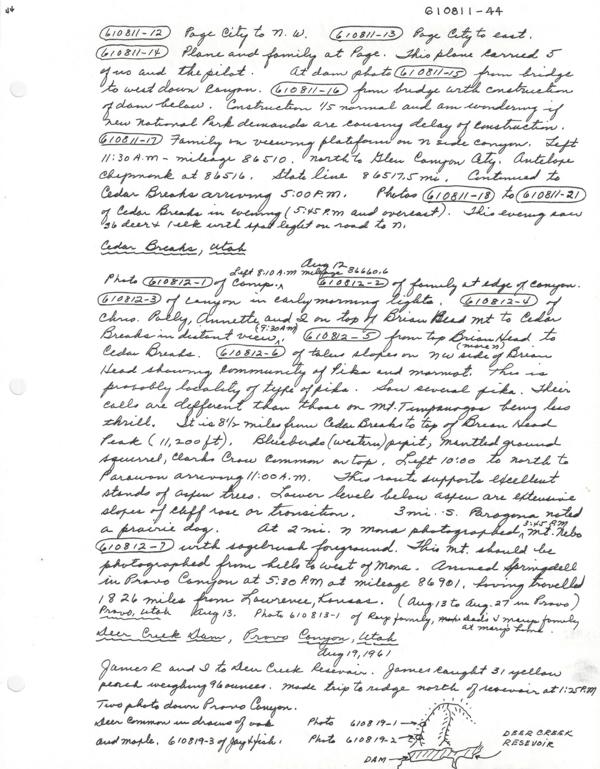 44
610811-44
610811-12 Page City to N.W. 610811-13 Page City to east.
610811-14 Plane and family at Page. This plane carried 5
of us and the pilot. At dam photo 610811-15 from bridge
to west down canyon. 610811-16 from bridge with construction
of dam below. Construction 1/5 normal and am wondering if
new National Park demands are causing delay of construction.
610811-17 Family on viewing plateform on n side canyon. Left
11:30 A.M - mileage 86510. north to Glen Canyon City. Antelope
Chipmonk at 86516. State line 86517.5 mi. Continued to
Cedar Breaks arriving 5:00 P.M. Photos 610811-18 to 610811-21
of Cedar Breaks in evening (5:45 P.M and overcast). This evening saw
36 deer & 1 elk with spot light on road to N.
Cedar Breaks, Utah
Aug 12
Left 8:10 A.M mileage 86660.6
Photo 610812-1 of Camp. 610812-2 of family at edge of canyon.
610812-3 of canyon in early morning lights. 610812-4 of
Chris. Polly, Annette and I on top of Brian Head Mt to Cedar
Breaks in distant view (9:30 AM). 610812-5 from top Brian Head to
Cedar Breaks. 610812-6 of talus slopes on NW side of Brian (more n)
Head showing community of Pika and marmot. This is
probably locality of type of pika. Saw several pika. Their
calls are different than those on Mt. Timpanogos being less
thrill. It is 8 1/2 miles from Cedar Breaks to top of Brian Head
Peak (11,200 ft). Bluebirds (western) pipit, mantled ground
squirrel, Clarks Crow common on top. Left 10:00 to north to
Parowan arriving 11:00 A.M. This route supports excellent
stands of aspen trees. Lower levels below aspen are extensive
slopes of cliff rose or transition. 3 mi. S. Paragona noted
a prairie dog. At 2 mi. n Mona photographed 3:45 P.M Mt. Nebo
610812-7 with sagebrush foreground. This Mt. should be
photographed from hills to west of Mona. Arrived Springdell
in Provo Canyon at 5:30 P.M at mileage 86901, having travelled
1826 miles from Lawrence, Kansas. (Aug 13 to Aug. 27 in Provo)
Provo, Utah Aug 13. Photo 610813-1 of Ray family, dads & Margs family
at margs home.
Deer Creek Dam, Provo Canyon, Utah
Aug 19, 1961
James R and I to Deer Creek Resevoir. James caught 31 yellow
perch weighing 96 ounces. made trip to ridge north of resevoir at 1:25 P.M
Two photo down Provo Canyon.
Deer common in draws of oak
and maple. 610819-3 of Jay & fish.
Photo 610819-1
Photo 610819-2
DAM
DEER CREEK
RESEVOIR